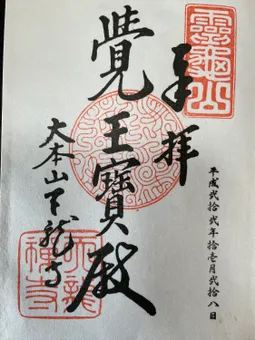 靈龜山
奉拝
平成弐拾弐年拾壱月弐拾八日
覺王寶殿
大本山天龍寺
天龍禅寺